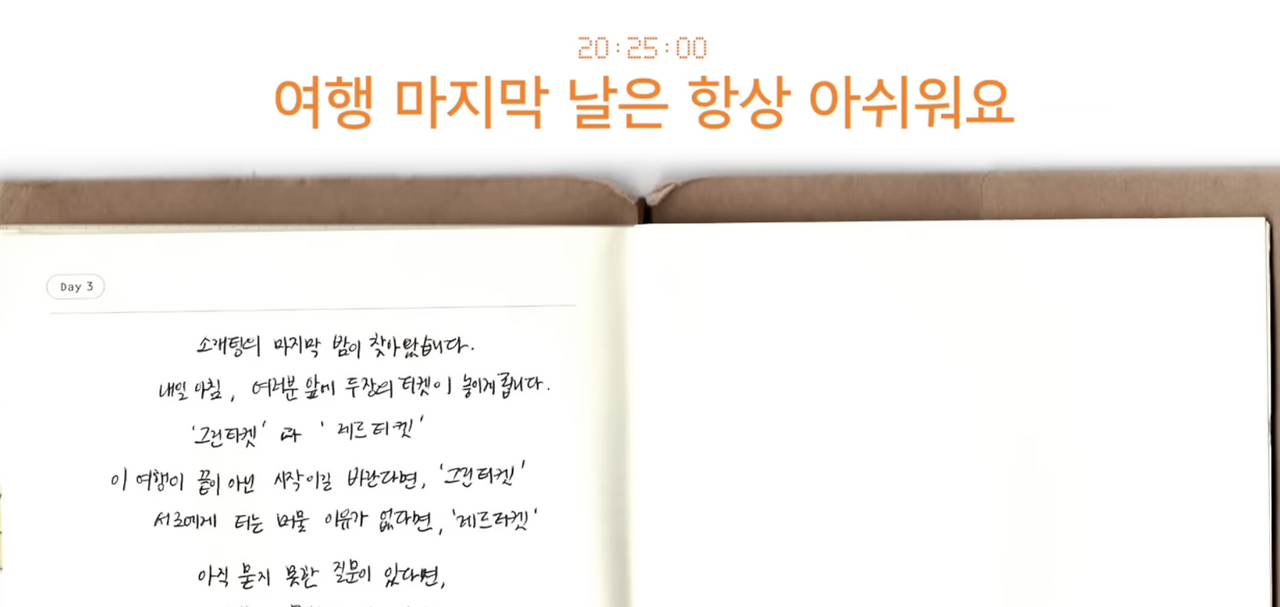 20:25:00
여행 마지막 날은 항상 아쉬워요
Day 3
소개팅의 마지막 밤이 찾아왔습니다.
내일 아침, 여러분 앞에 두장의 티켓이 놓이게 됩니다.
'그린티켓' 과 '레드티켓'
이 여행이 끝이 아닌 시작이길 바란다면, '그린티켓'
서로에게 더는 머물 이유가 없다면, '레드티켓'
아직 묻지 못한 질문이 있다면,